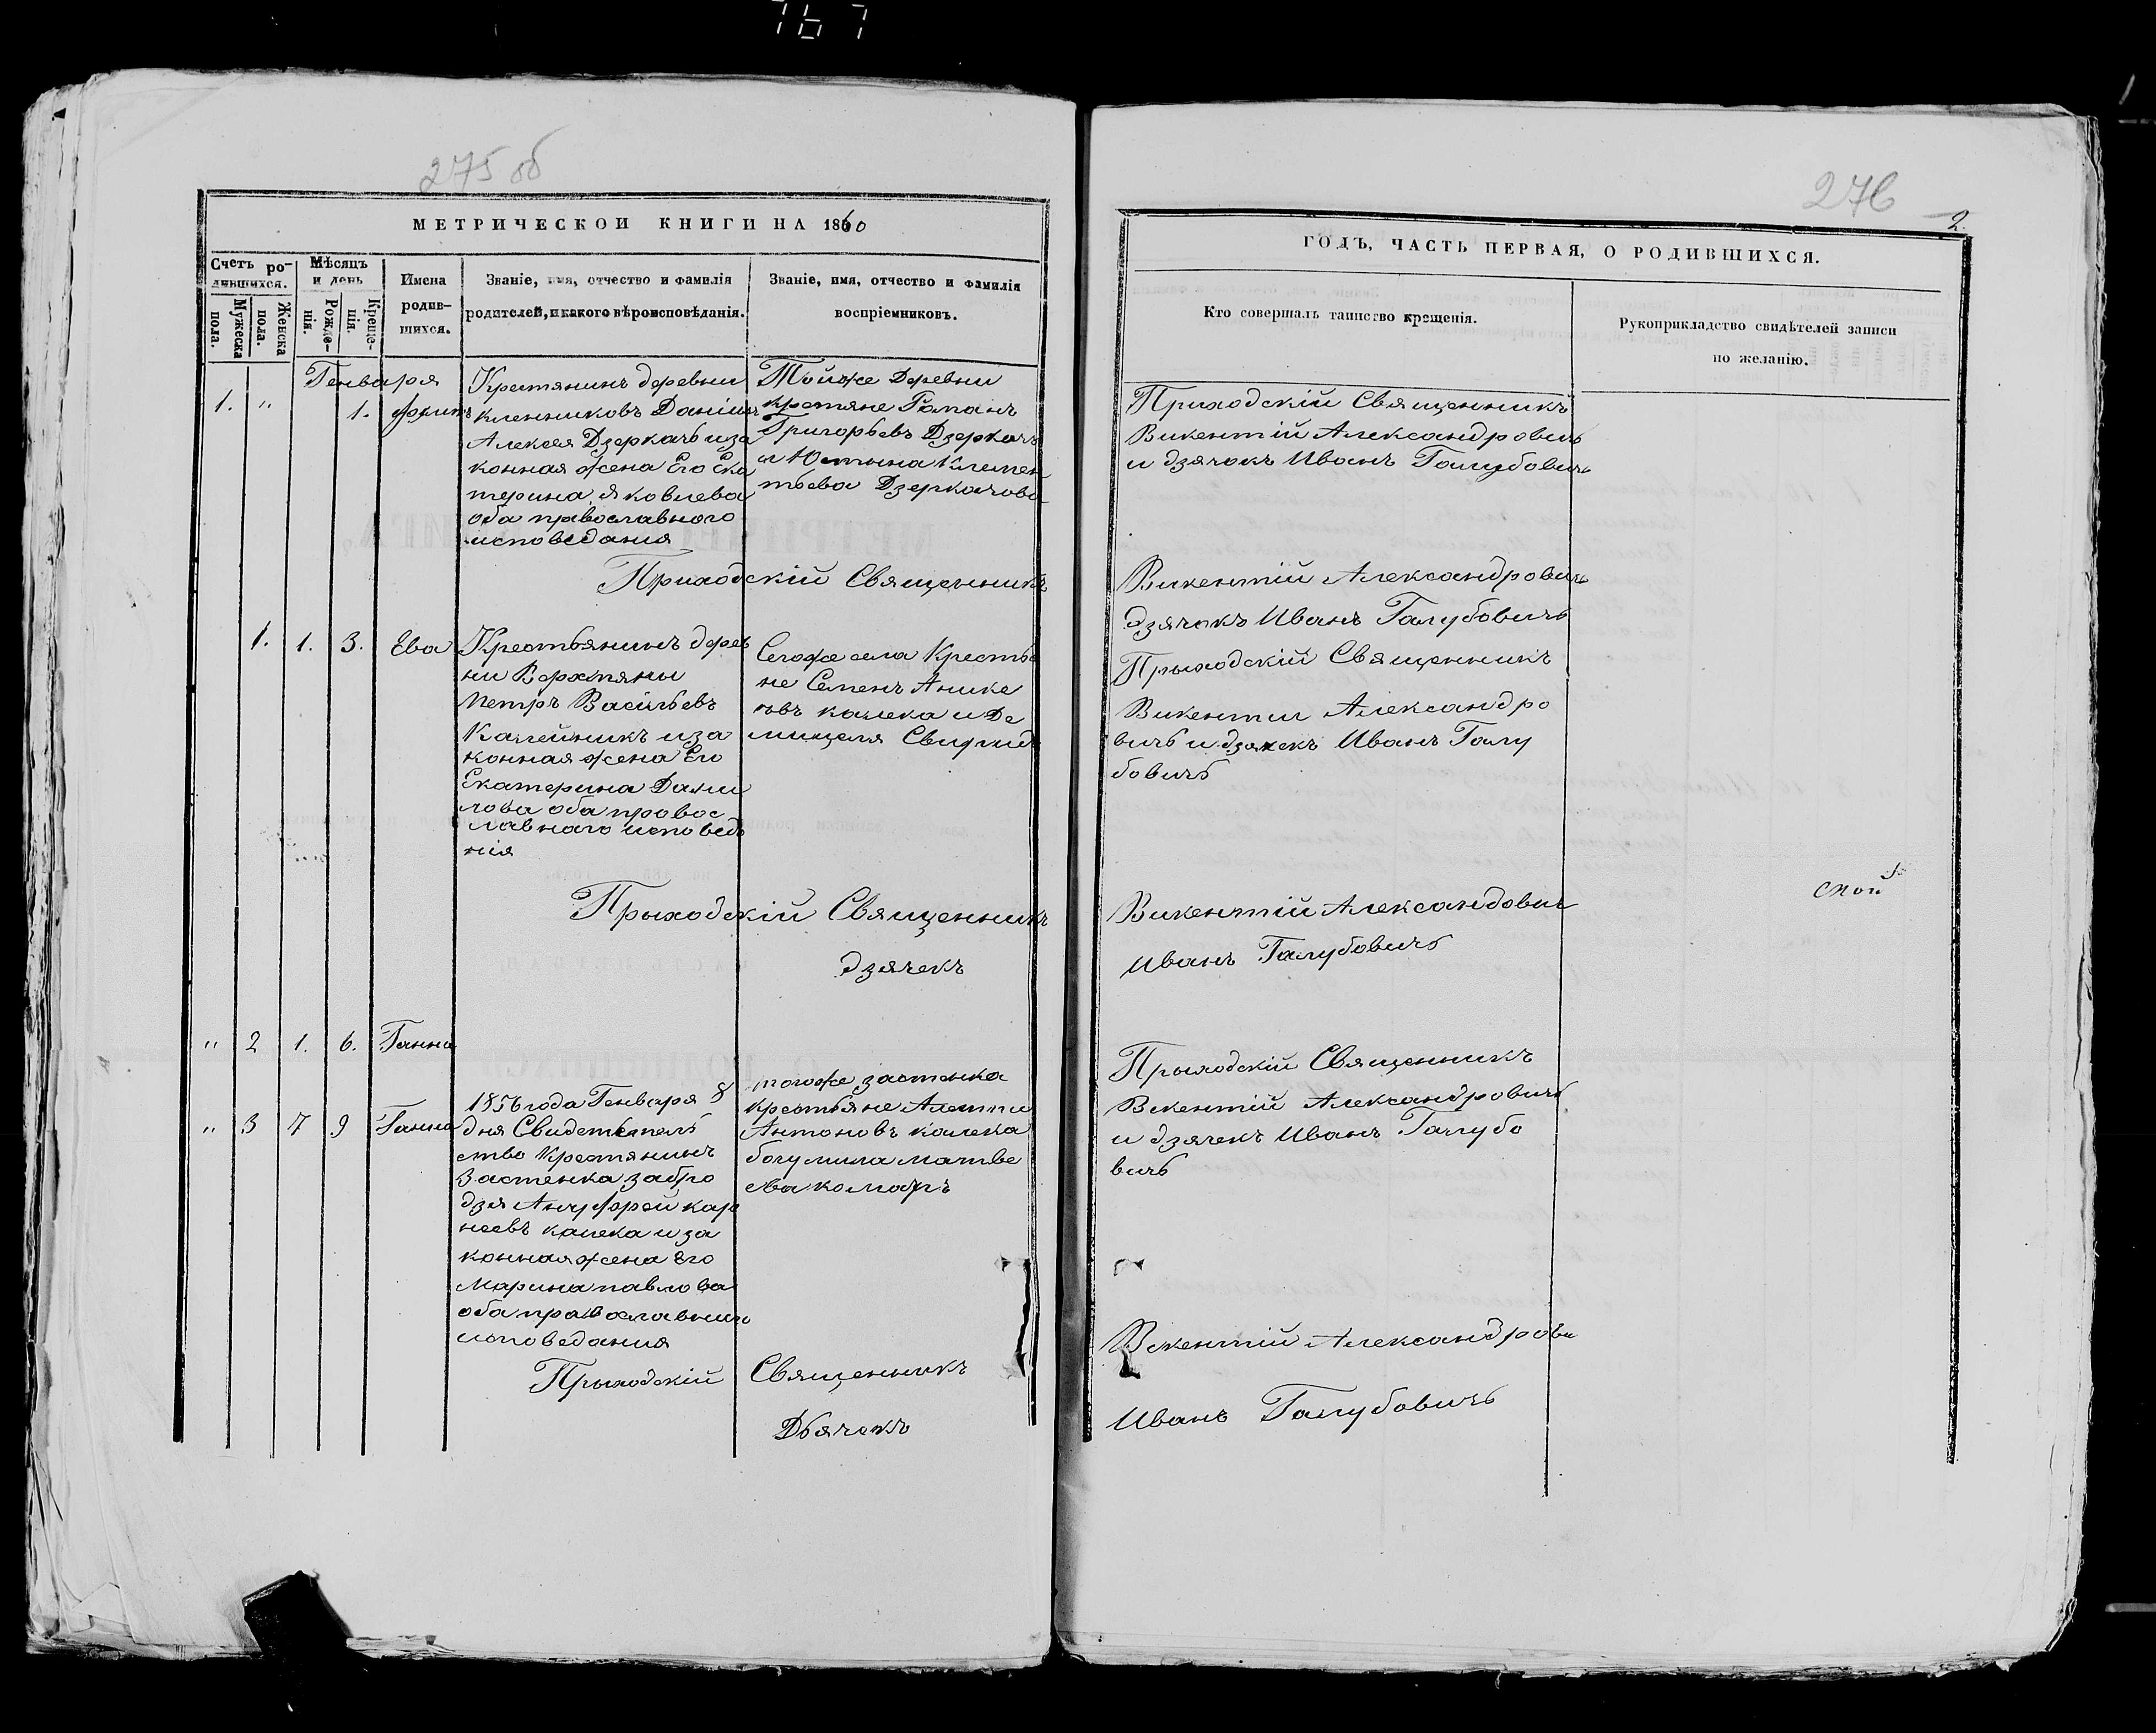 767
275 об
МЕТРИЧЕСКОЙ КНИГИ НА 1860
Счетъ ро-
дившихся.
Мужеска
пола.
Женска
пола.
Мѣсяцъ
и день
Рожде-
нія.
Креще-
нія.
Имена
родив-
шихся.
Званіе, имя, отчество и фамилія
родителей, и какого вѣроисповѣданія.
Званіе, имя, отчество и фамилія
воспріемниковъ.
Генваря
1. " 1.
Крестянинъ деревни
кленниковъ Даніилъ
Алексея Дзеркачь иза
конная жена Его Ека
терина Яковлева
оба православного
исповедания
Тойже Деревни
крстяне Романъ
Григорьевъ Дзеркачъ
и Юстына Клемен
тьева Дзеркачова
Приходскій Священникъ
1. 1. 3. Ева
Крестьянинъ дерев
ни Верхтяны
Петръ Васильевъ
Калейникъ иза
конная жена Его
Екатерина Дани
лова оба провос
лавнаго исповеда
нія
Сегоже села Крестья
не Семенъ Анике
евъ калека и До
Прыходскій Священникъ
дзячекъ
" 2 1. 6. Ганна
" 3 7 9 Ганна
1856 года Генваря 8
дня Свидетель
ство Крестянинъ
Застенка забро
дзя Ануфрей кар
неевъ калека и за
конная жена Его
Марина павлова
оба православного
исповедания
тогоже застенка
крестьяне
Антоновъ калека
богумила матве
ева комаръ
Прыходскій Священникъ
Дьячекъ
276
2.
ГОДЪ, ЧАСТЬ ПЕРВАЯ, О РОДИВШИХСЯ.
Кто совершалъ таинство крещенія.
Рукоприкладство свидѣтелей записи
по желанію.
Приходскій Священникъ
Викентій Александровичь
и дзячокъ Иванъ Галубовичь
Викентій Александровичь
дзячокъ Иванъ Галубовичь
Прыходскій Священникъ
Викентии Александро
вичь и дзячекъ Иванъ Галу
бовичь
Викентій Александович
Иванъ Галубовичь
Прыходскій Священникъ
Векентій Александровичь
и дзячекъ Иванъ Галубо
вичь
Векентій Александрови
Иванъ Галубовичь